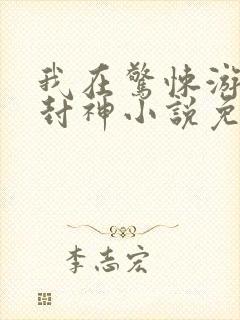 我在驚悚游
封神小說免
李志宏